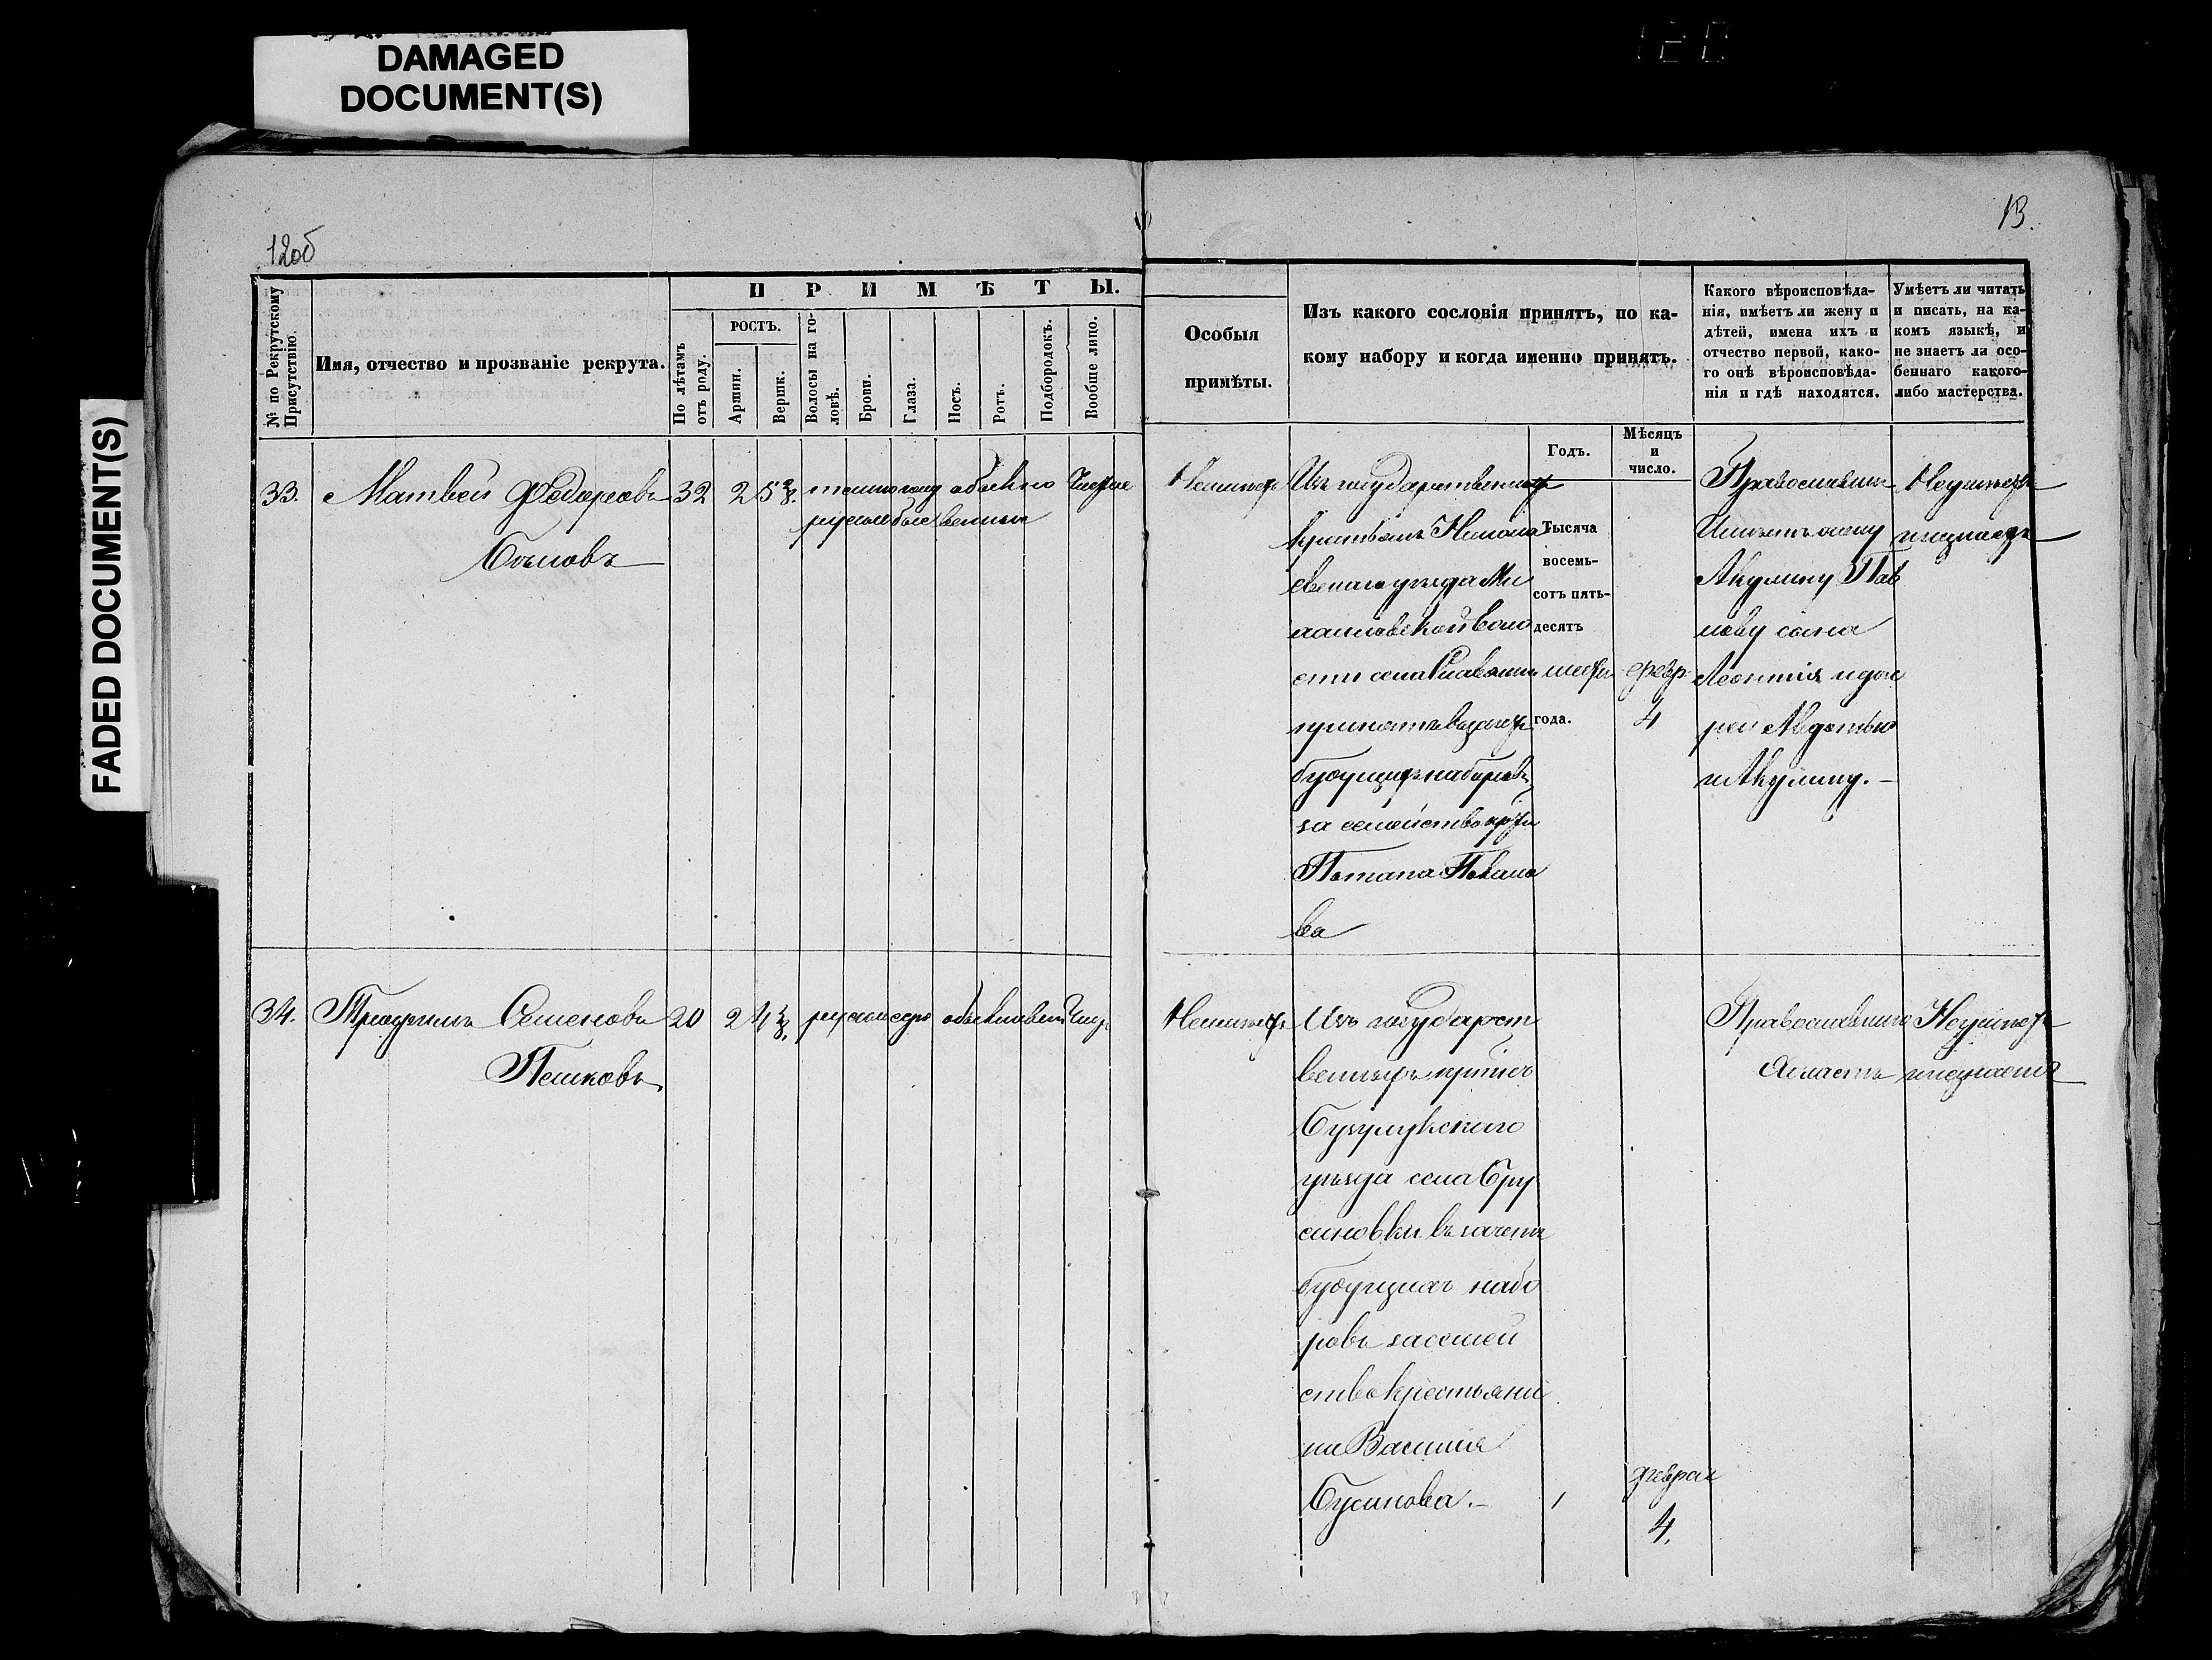 DAMAGED
DOCUMENT(S)
FADED DOCUMENT(S)
12об
13.
№ по Рекрутскому Присутствію.
Имя, отчество и прозваніе рекрута.
ПРИМѢТЫ.
По лѣтамъ отъ роду.
РОСТЪ.
Аршин.
Вершк.
Волосы на головѣ.
Брови.
Глаза.
Носъ.
Ротъ.
Подбородокъ.
Вообще лицо.
Особыя
примѣты.
Изъ какого сословія принятъ, по ка-
кому набору и когда именно принятъ.
Годъ.
Мѣсяцъ
и
число.
Какого вѣроисповѣда-
нія, имѣетъ ли жену и
дѣтей, имена ихъ и
отчество первой, како-
го онѣ вѣроисповѣда-
нія и гдѣ находятся.
Умѣетъ ли читать
и писать, на ка-
комъ языкѣ, и
не знаетъ ли осо-
беннаго какого-
либо мастерства.
33. Матвей Федоровъ 32 2 5
Неимѣетъ
Изъ государственныхъ
крестьянъ Никола
евскаго уѣзда Ми
хайловской воло
сти села
принятъ взачетъ
будущихъ наборовъ
за семейство
Потапа
ва
Тысяча
восемь-
сотъ пять-
десятъ
года.
февр
4
Православн
Имѣетъ жену
Акулину Пав
лову сына
Леонтія и доче
рей Авдотью
и Акулину.-
Неумѣетъ
инезнаетъ
34. Трофимъ Семеновъ 20 2 4
Пешковъ
Неимѣетъ
Изъ государст
венныхъ
Бузулукскаго
уѣзда села
въ зачетъ
будущихъ набо
ровъ засемей
ство крестьяни
на Василія
февраля
4.
Православнаго
Холостъ
Неумѣетъ
инезнаетъ